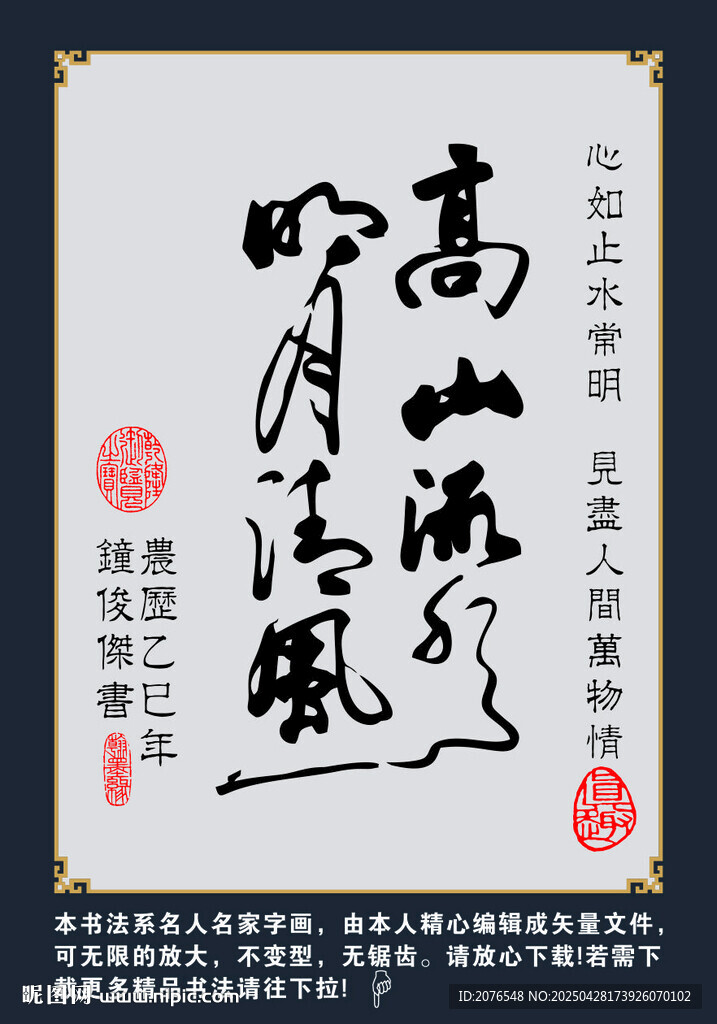 心如止水常明 見盡人間萬物情
高山流水
明月清風
農歷乙巳年
鐘俊傑書
乾隆
御覽
之寶
翰墨緣
本书法系名人名家字画，由本人精心编辑成矢量文件，
可无限的放大，不变型，无锯齿。请放心下载!若需下
载更多精品书法请往下拉!
昵图网 www.nipic.com
ID:2076548 NO:20250428173926070102